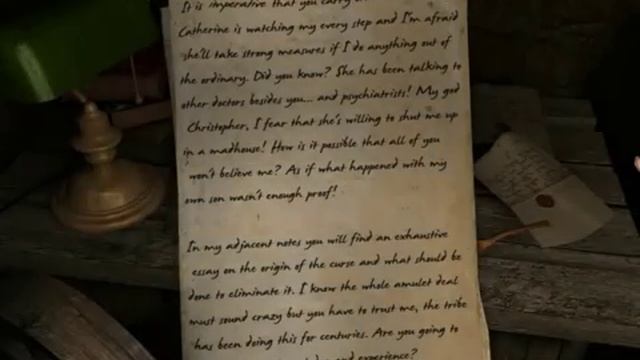 It is imperative that you carry
Catherine is watching my every step and I'm afraid
she'll take strong measures if I do anything out of
the ordinary. Did you know? She has been talking to
other doctors besides you... and psychiatrists! My god
Christopher, I fear that she's willing to shut me up
in a madhouse! How is it possible that all of you
won't believe me? As if what happened with my
own son wasn't enough proof!
In my adjacent notes you will find an exhaustive
essay on the origin of the curse and what should be
done to eliminate it. I know the whole amulet deal
must sound crazy but you have to trust me, the tribe
has been doing this for centuries. Are you going to
and experience?